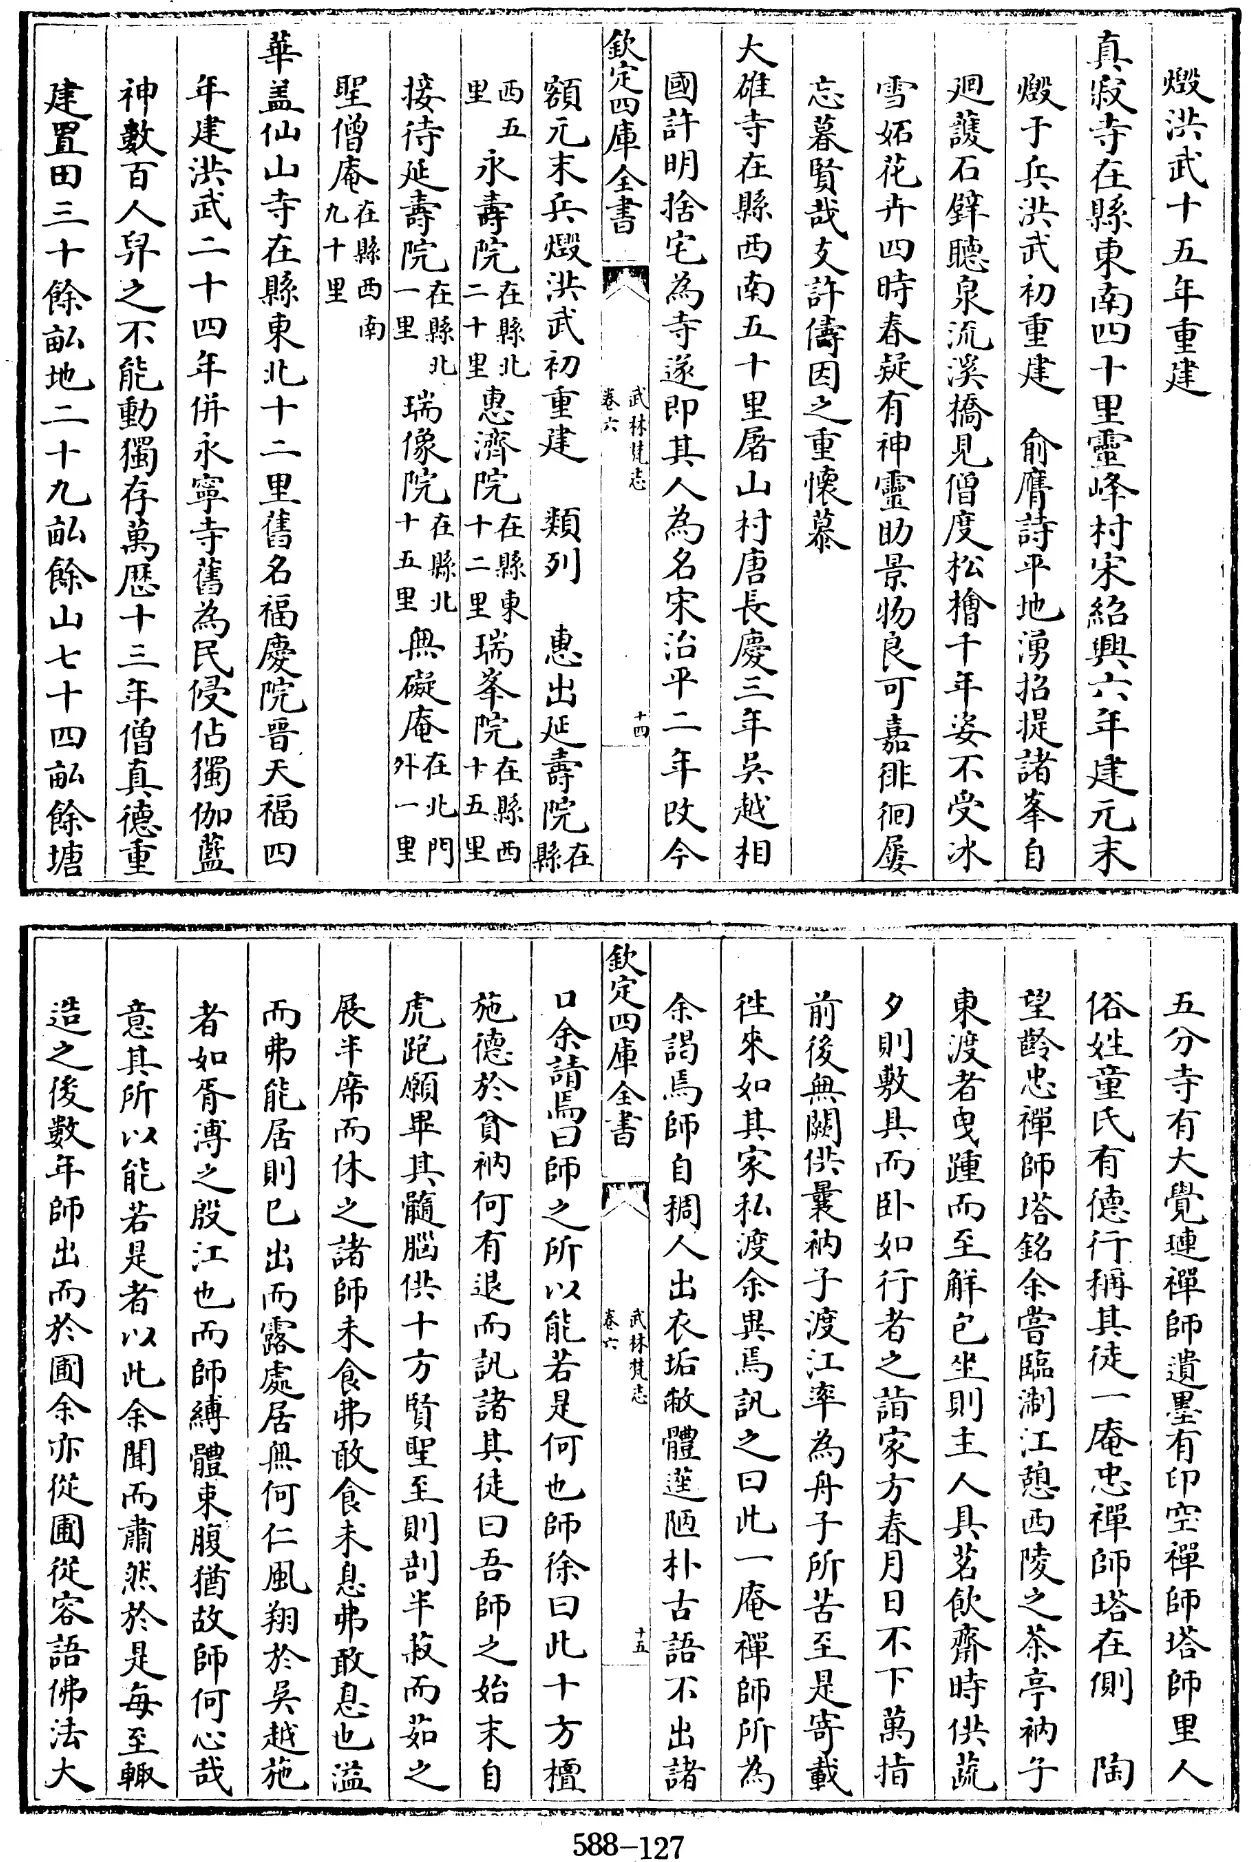 燬洪武十五年重建
真寂寺在縣東南四十里靈峰村宋紹興六年建元末
燬于兵洪武初重建　俞膺詩平地湧招提諸峯自
迴護石聲聽泉流溪橋見僧度松檜千年姿不受冰
雪妬花卉四時春疑有神靈助景物良可嘉徘徊屡
忘暮賢哉支許儔因之重懷慕
大雄寺在縣西南五十里屠山村唐長慶三年吳越相
國許明捨宅為寺遂即其人為名宋治平二年改今
欽定四庫全書　武林梵志卷六　十四
額元末兵燬洪武初重建　類列　惠出延壽院在縣
西五里永壽院在縣北二十里惠濟院在縣東十二里瑞峯院在縣西十五里
接待延壽院在縣北一里瑞像院在縣北十五里無礙庵在北門外一里
聖僧庵在縣西南九十里
華盖仙山寺在縣東北十二里舊名福慶院晉天福四
年建洪武二十四年併永寧寺舊為民侵佔獨伽藍
神數百人舁之不能動獨存萬歷十三年僧真德重
建置田三十餘畝地二十九畝餘山七十四畝餘塘
五分寺有大覺璉禪師遺墨有印空禪師塔師里人
俗姓童氏有德行稱其徒一庵忠禪師塔在側　陶
望齡忠禪師塔銘余嘗臨淛江憩西陵之茶亭衲子
東渡者曳踵而至解包坐則主人具茗飲齋時供蔬
夕則敷具而卧如行者之詣家方春月日不下萬指
前後無闕供曩衲子渡江率為舟子所苦至是寄載
往來如其家私渡余異焉訊之曰此一庵禪師所為
余謁焉師自稠人出衣垢敝體莝陋朴古語不出諸
欽定四庫全書　武林梵志卷六　十五
口余請焉曰師之所以能若是何也師徐曰此十方檀
施德於貧衲何有退而訊諸其徒曰吾師之始末自
虎跑願畢其髓腦供十方賢聖至則剖半菽而茹之
展半席而休之諸師未食弗敢食未息弗敢息也溢
而弗能居則已出而露處居無何仁風翔於吳越施
者如胥漙之殷江也而師縛體束腹猶故師何心哉
意其所以能若是者以此余聞而肅然於是每至輙
造之後數年師出而於圃余亦從圃從容語佛法大